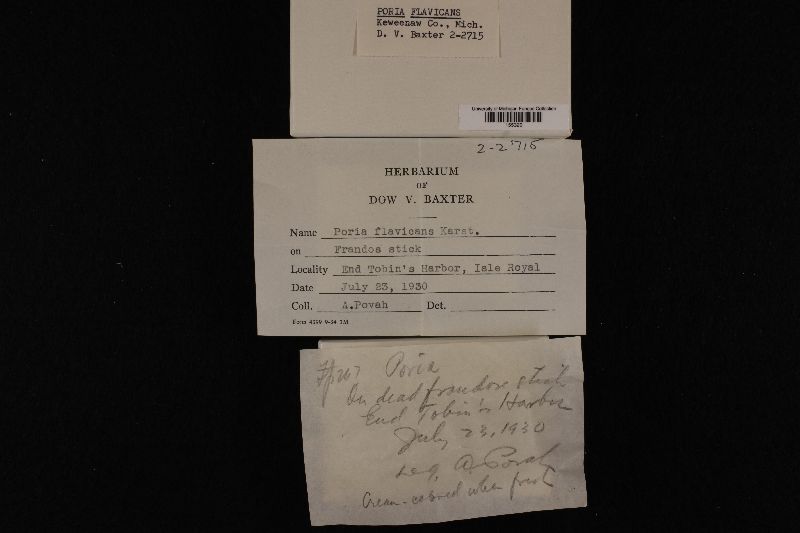 PORIA FLAVICANS
Keweenaw Co., Mich.
D. V. Baxter 2-2715
University of Michigan Fungus Collection
2-2715
HERBARIUM
OF
DOW V. BAXTER
Name Poria flavicans Karst.
on Frandos stick
Locality End Tobin's Harbor, Isle Royal
Date July 23, 1930
Coll. A.Povah Det.
Form 4399 9-34 2M
Poria
On dead frondose stick
End Tobin's Harbor
July 23, 1930
Leg. A. Povah
Cream-colored when fresh